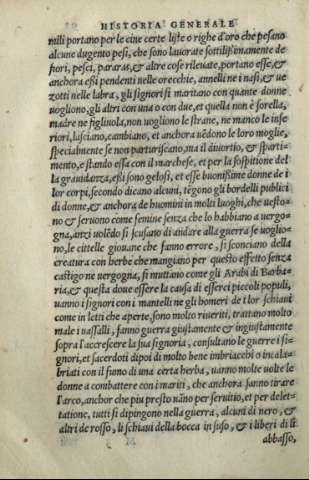 HISTORIA GENERALE
mili portano per le cine certe liste o righe d'oro che pesano
alcune dugento pesi, che sono lauorate sottilissimamente de
fiori, pesci, pararas, & altre cose rileuate, portano esse, &
anchora essi pendenti nelle orecchie, annelli ne i nasi, & ue
zotti nelle labra, gli signori si maritano con quante donne
uogliono, gli altri con una o con due, et quella non è sorella,
madre ne figliuola, non uogliono le strane, ne manco le infe
riori, lasciano, cambiano, et anchora uēdono le loro moglie,
spetialmente se non parturiscano, ma il diuortio, & sparti-
mento, e stando essa con il marchese, et per la sospitione del
la grauidanza, essi sono gelosi, et esse buonissime donne de i
lor corpi, secondo dicano alcuni, tēgono gli bordelli publici
di donne, & anchora de huomini in molti luoghi, che uesto-
no & seruono come femine senza che lo habbiano a uergo-
gna, anzi uolēdo si scusano di andare alla guerra se uoglio-
no, le cittelle giouane che fanno errore, si sconciano della
creatura con herbe che mangiano per questo effetto senza
castigo ne uergogna, si mutano come gli Arabi di Barba-
ria, & questa doue essere la causa di esserci piccoli populi,
uanno i signori con i mantelli ne gli homeri de i lor schiaui
come in letti che aperte, sono molto riueriti, trattano molto
male i uassalli, fanno guerra giustamente & ingiustamente
sopra l'accrescere la sua signoria, consultano le guerre i si-
gnori, et sacerdoti dipoi di molto bene imbriacchi o incala-
briati con il fiano di una certa herba, uanno molte uolte le
donne a combattere con i mariti, che anchora sanno tirare
l'arco, anchor che piu presto uāno per seruitio, et per delet-
tatione, tutti si dipingono nella guerra, alcuni di nero, &
altri de rosso, li schiaui della bocca in suso, & i liberi di li
abbasso,